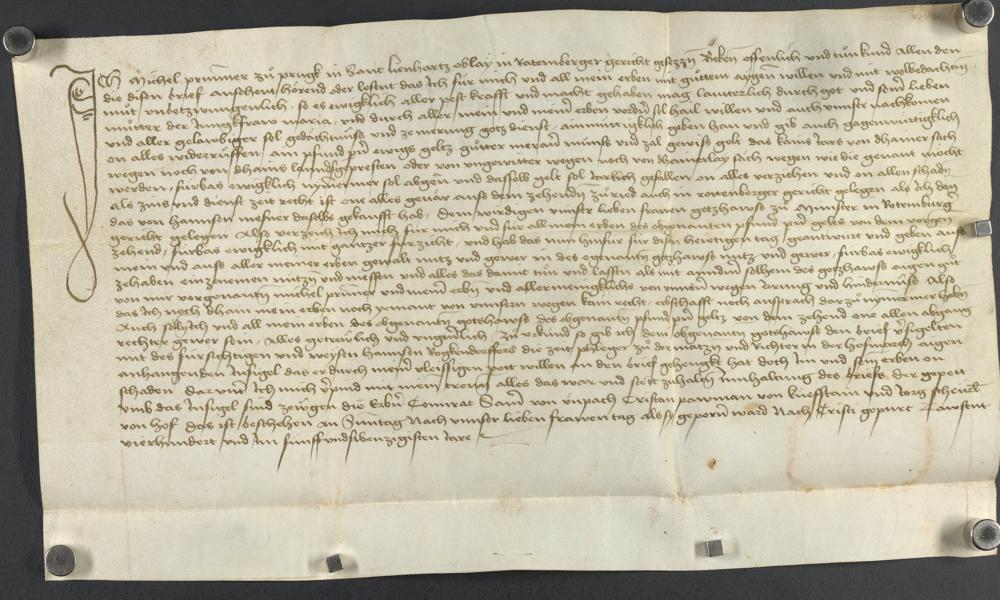 Ich Michel prunner zu prugk in Sant lienhartz oblay in Ratemberger gericht gesezzn Beken offenlich und tun kund Allen den
die disen brief ansehent hörend oder lesent das Ich für mich und all mein erben mit gutem aygen willen und mit wolbedachtem
mut unbetzwungenlich so es ewigklich aller pest krafft und macht gehaben mag lauterlich durch got und seiner lieben
mutter der Junckfraw maria und durch aller meiner und meiner erben vodern sel hail willen und auch unser nachkomen
und aller gelaubiger sel gedächtnüss und ze merung gotz dienst ainmütigklich geben han und gib auch gagenwürtigklich
on alles widerrüffen ain pfund perner ewigs geltz guter meraner münss und zal gewiss gelt das kains Jars von dhainer sach
wegen noch von dhains landsgepresten oder von ungewitter wegen noch von dhainerlay sach wegen wie die genant möcht
werden fürbas ewigklich nymermer sol abgen und dasselb gelt sol Jarlich gefallen on alles verziehen und on allen schadn
als zins und dienst zeit recht ist one alles gevär auss dem zehenden zu Ried auch in rotenberger gericht gelegen als Ich den
das von hannsen mesner daselbs gekaufft hab Dem wirdigen unser lieben frawen gotzhawse zu Münster in Rotemburg
gericht gelegen Also verzeich Ich mich für mich und für all mein erben des obgenanten pfund perner geltz von dem vorgen
zehend fürbas ewigklich mit gantzer furzicht und hab das nun hinfür für disen hewtigen tag geantwurt und geben auss
mein und auss aller meiner erben gewalt nutz und gewer in des egenanten gotzhawss nutz und gewer fürbas ewigklich
zehaben einzenemen nützen und niessen und alles das damit tun und lassen als mit anndern solhem des gotzhawss aygen gut
von mir vorgenanten michel prunner und meinen erben und allermeingklichs von unsern wegen Jrrung und hindernüss Also
das Ich noch dhain mein erben noch yemant von unsern wegen kain recht erbschafft noch ansprach dar zu nymermer haben
Auch sol Ich und all mein erben des obgenanten gotzhawss des obgenanten pfund perner geltz von dem zehend one allen abgang
rechter gewer sein Alles getrewlich und ungeverlich Zu urkund so gib ich dem obgenanten gotzhawss den brief versigelten
mit des fürsichtigen und weysen hannsen Rogkendorffers die zeit phleger zu der matzn und Richter in der hofmarch aigen
anhangenden Insigel das er durch meiner vleissigen pett willen an den brief gehengkt hat doch Im und sein erben on
schaden Darunder Ich mich verpind mit mein trewn alles das war und stett zuhalten Innhaltung des briefs der gepett
umb das Insigel sind zewgen die Erbern Conrat von Cristan pawman von kuefstain und Jorg
von hof Das ist beschehen An Sunntag Nach unser lieben frawen tag Als sy geporn ward Nach Cristi gepurt Tawsent
vierhundert und Im funffundsibenzigisten Jare